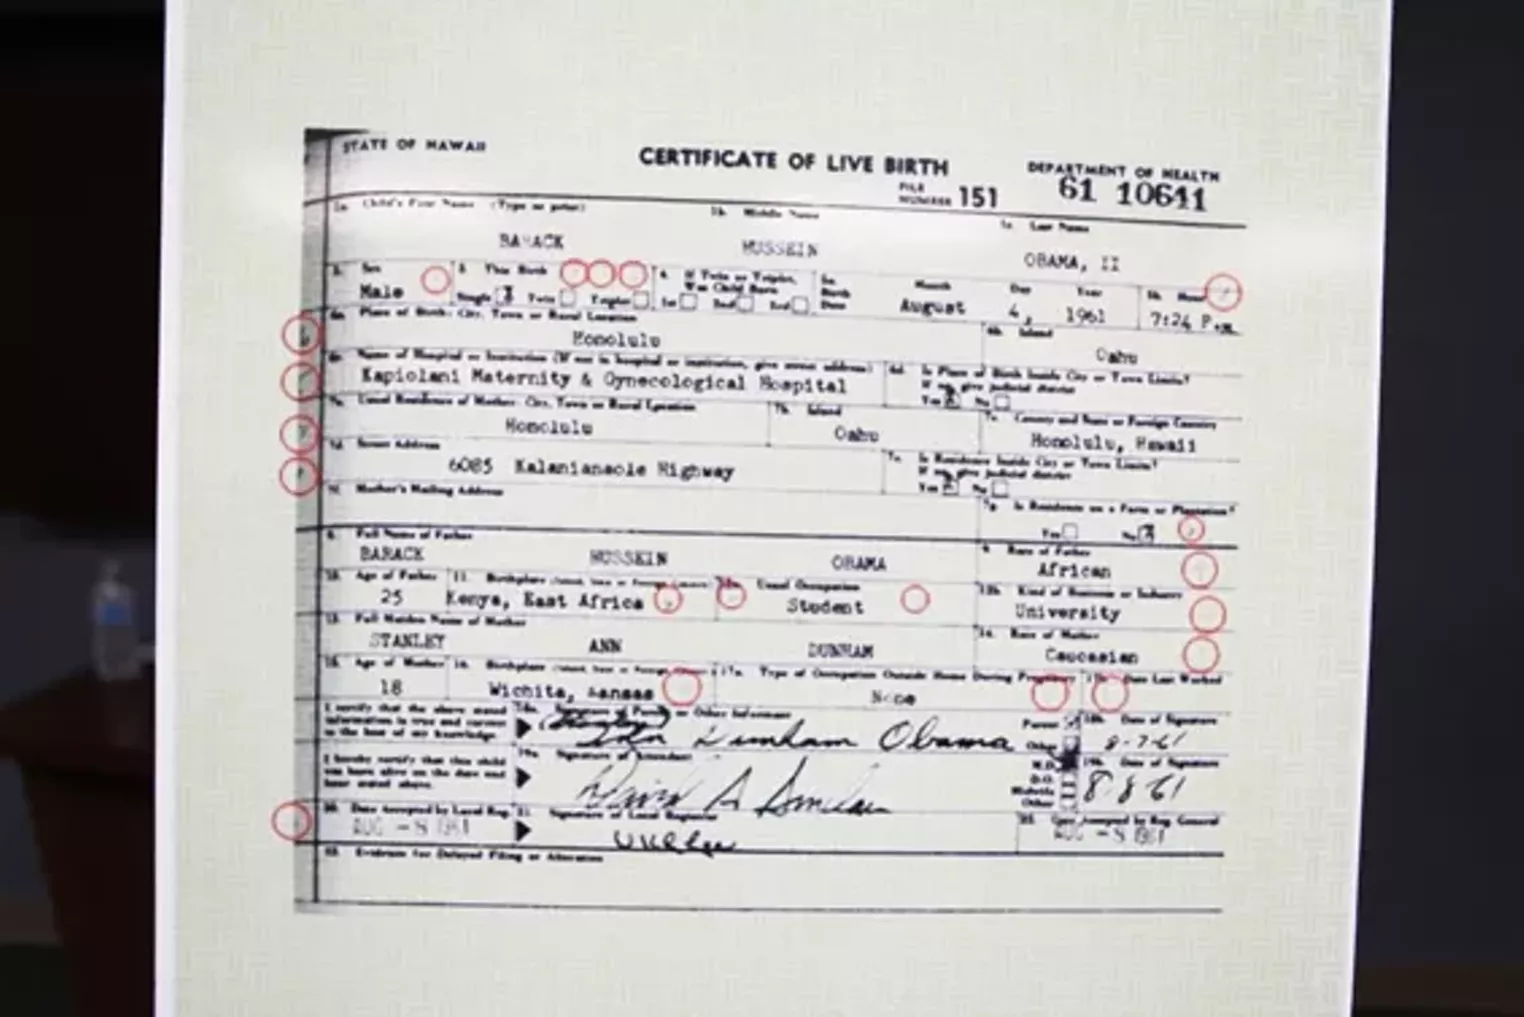 STATE OF HAWAII CERTIFICATE OF LIVE BIRTH DEPARTMENT OF HEALTH
FILE NUMBER 151 61 10641
1a. Child's First Name (Type or print) 1b. Middle Name 1c. Last Name
BARACK HUSSEIN OBAMA, II
2. Sex 3. This Birth 4. If Twin or Triplet, Was Child Born 5a. Birth Date Month Day Year 5b. Hour
Male Single Twin Triplet 1st 2nd 3rd August 4, 1961 7:24 P.M.
6a. Place of Birth: City, Town or Rural Location 6b. Island
Honolulu Oahu
6c. Name of Hospital or Institution (If not in hospital or institution, give street address) 6d. Is Place of Birth Inside City or Town Limits?
If no, give judicial district
Kapiolani Maternity & Gynecological Hospital Yes No
7a. Usual Residence of Mother: City, Town or Rural Location 7b. Island 7c. County and State or Foreign Country
Honolulu Oahu Honolulu, Hawaii
7d. Street Address 7e. Is Residence Inside City or Town Limits?
If no, give judicial district
6085 Kalanianaole Highway Yes No
7f. Mother's Mailing Address 7g. Is Residence on a Farm or Plantation?
Yes No
8. Full Name of Father 9. Race of Father
BARACK HUSSEIN OBAMA African
10. Age of Father 11. Birthplace (Island, State or Foreign Country) 12a. Usual Occupation 12b. Kind of Business or Industry
25 Kenya, East Africa Student University
13. Full Maiden Name of Mother 14. Race of Mother
STANLEY ANN DUNHAM Caucasian
15. Age of Mother 16. Birthplace (Island, State or Foreign 17a. Type of Occupation Outside Home During Pregnancy 17b. Date Last Worked
18 Wichita, Kansas None
I certify that the above stated information is true and correct to the best of my knowledge.
18a. Signature of Parent or Other Informant Parent Other 18b. Date of Signature
(Stanley) Ann Dunham Obama 8-7-61
I hereby certify that this child was born alive on the date and hour stated above.
19a. Signature of Attendant M.D. D.O. Midwife Other 19b. Date of Signature
David A Sinclair 8 8 61
20. Date Accepted by Local Reg. 21. Signature of Local Registrar 22. Date Accepted by Reg. General
AUG -8 1961 AUG -8 1961
23. Evidence for Delayed Filing or Alteration